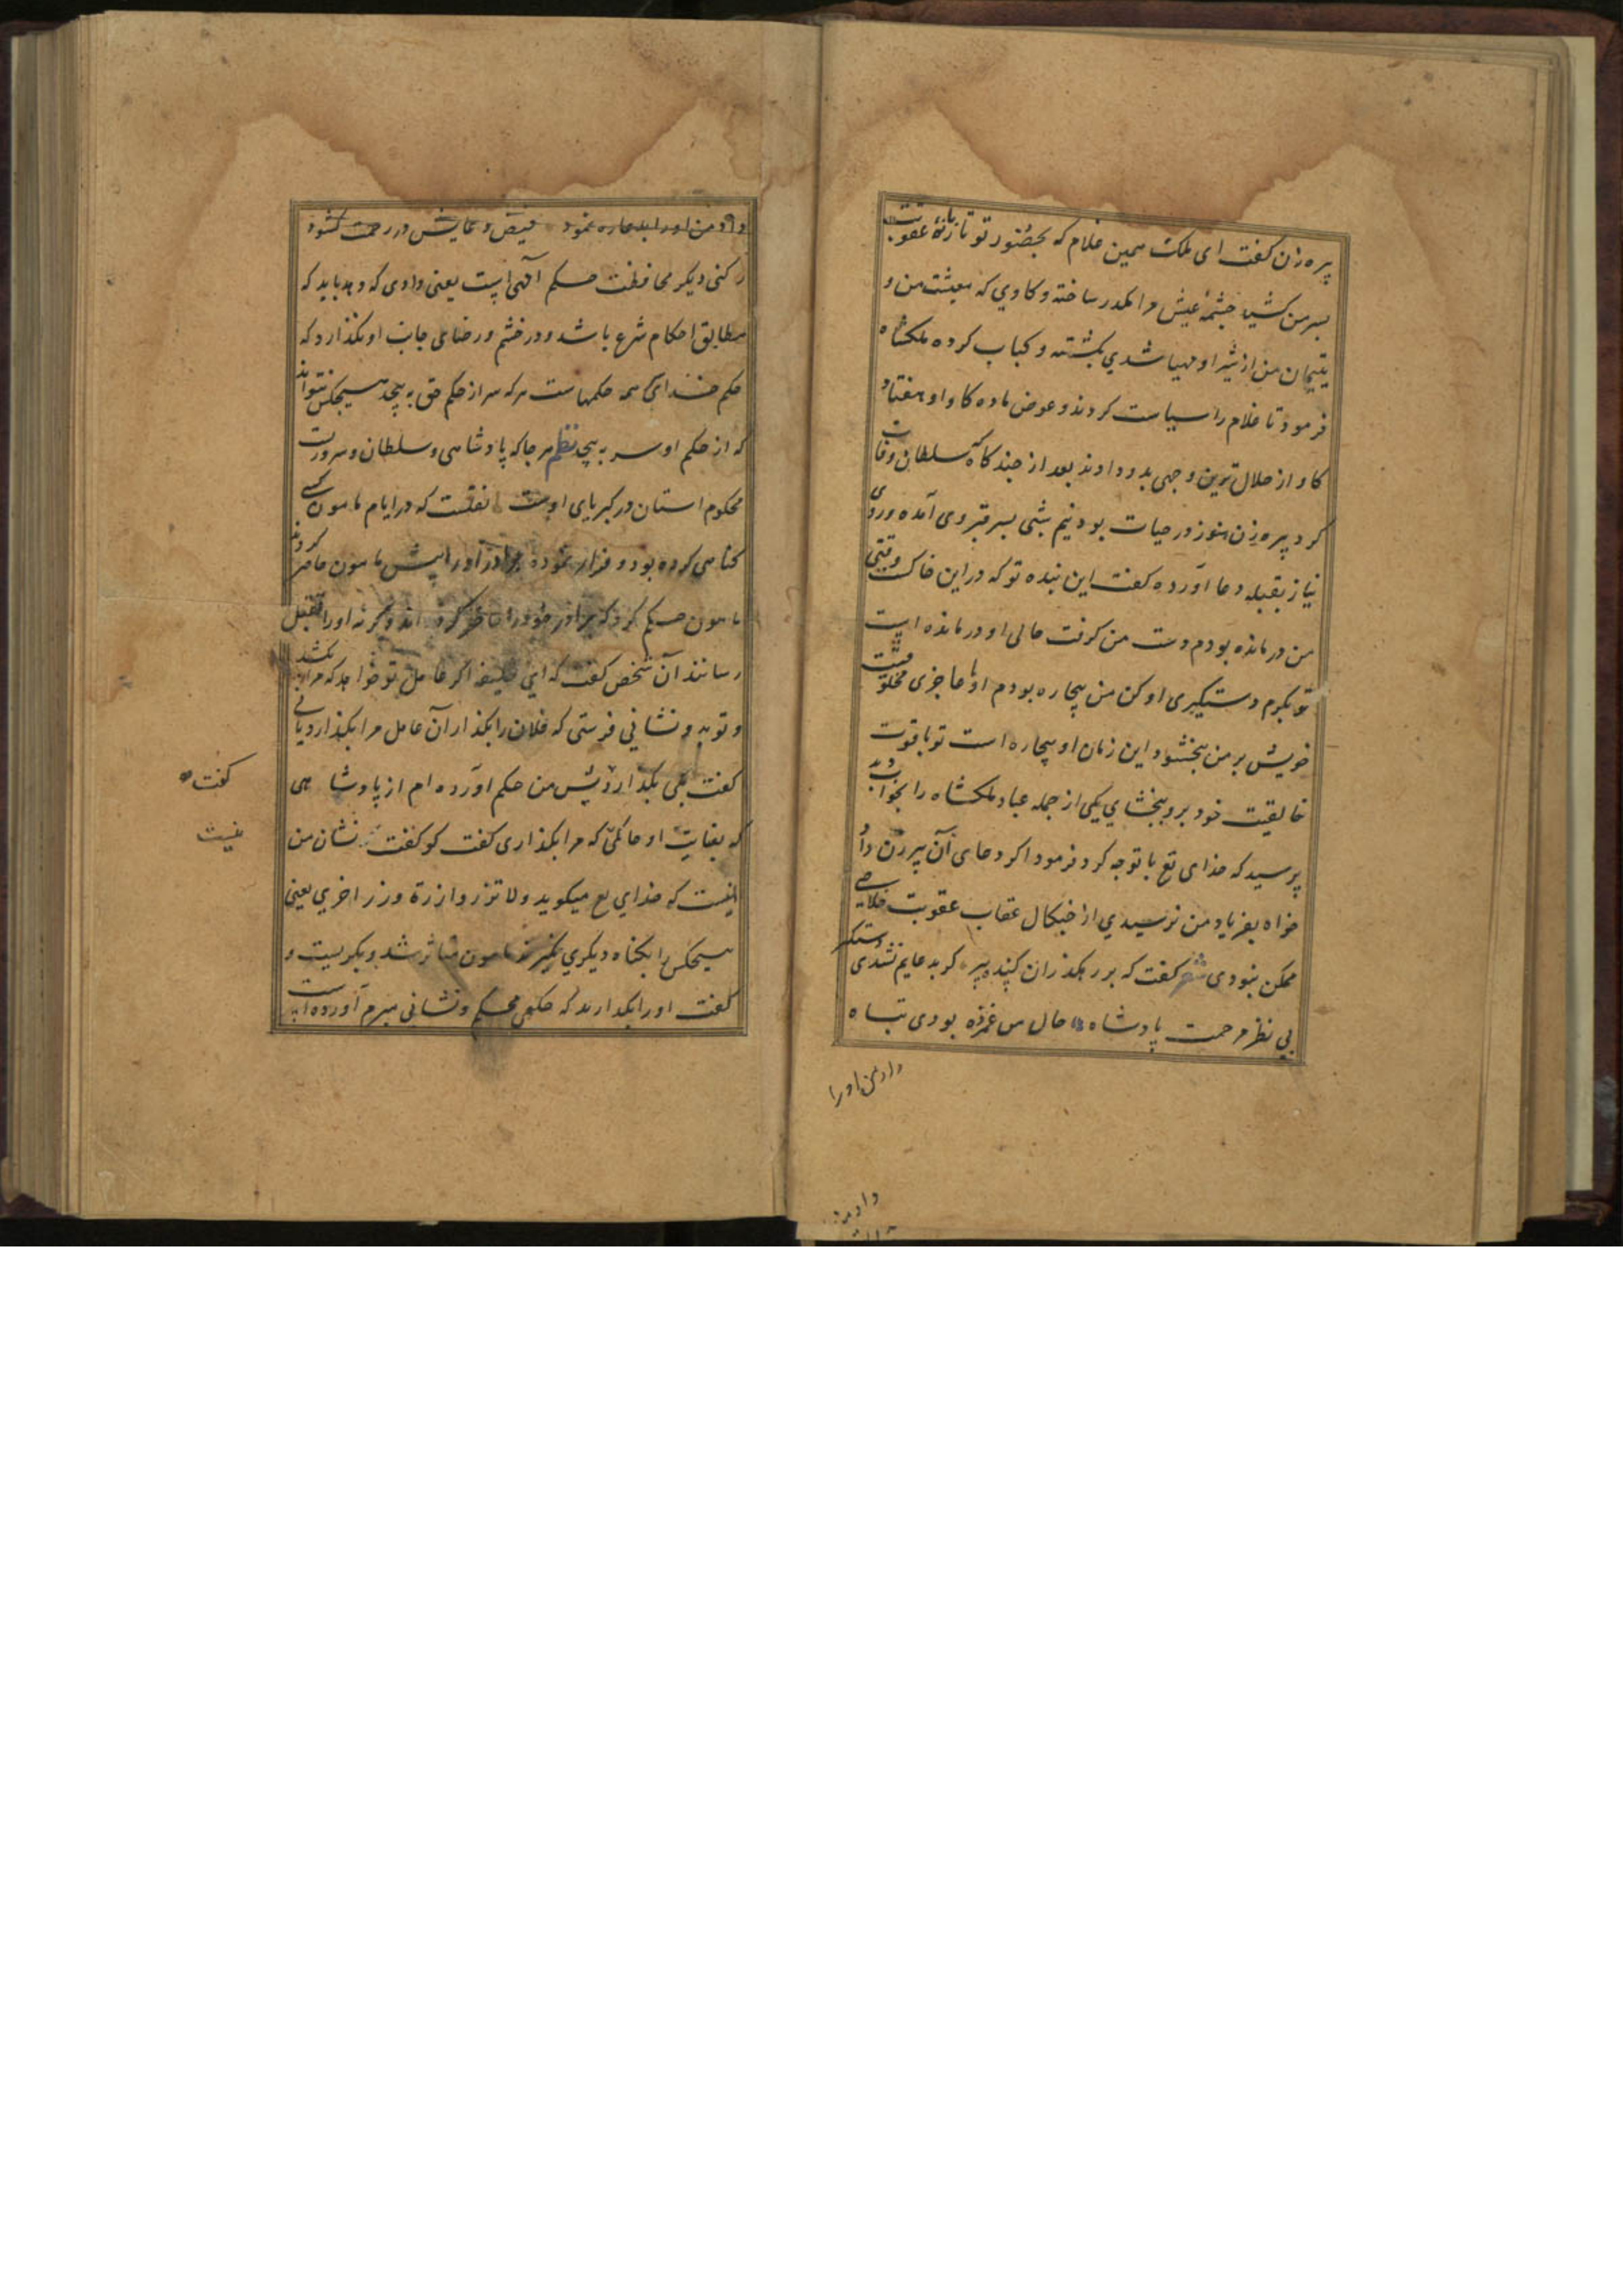 پیره زن کفت ای ملک همین غلام که بحضور تو تازیانهٔ عقوبت
بسر من کشید چشمهٔ عیش مرا مکدر ساخته و کاوی که معیشت من و
یتیمان من از شیر او مهیا شدی بکشته و کباب کرده ملکشاه
فرمود تا غلام را سیاست کردند و عوض ماده کاو او هفتاد
کاو از حلال ترین وجهی بدو دادند بعد از چند کاه که سلطان وفات
کرد پیره زن هنوز در حیات بود نیم شبی بسر قبر وی آمده و روی
نیاز بقبله دعا آورده کفت این بنده تو که در این خاکست وقتی
من درمانده بودم دست من کرفت حالی او درمانده است
تو بکرم دستکیری او کن من بیچاره بودم او با عاجزی مخلوقیت
خویش بر من ببخشود این زمان او بیچاره است تو با قوت
خالقیت خود برو ببخشای یکی از جمله عباد ملکشاه را بخواب دید
پرسید که خدای تع با تو چه کرد فرمود اکر دعای آن پیر زن داد
خواه بفریاد من نرسیدی از چنکال عقاب عقوبت خلاصی
ممکن نبودی شعر کفت که بر رهکذران کنده پیر کر بدعایم نشدی دستکیر
بی نظر مرحمت پادشاه حال من غمزده بودی تباه
داد من او را
داد من او را نمود فیض دعایش در رحمت کشود
رکنی دیکر محافظت حکم الهی است یعنی دادی که دهد باید که
مطابق احکام شرع باشد و در خشم و رضای جانب او نکذارد که
حکم خدای همه حکمهاست هر که سر از حکم حق به پیچد هیچکس نتواند
که از حکم او سر به پیچد نظم هر جا که پادشاهی و سلطان و سروریست
محکوم استان در کبریای اوست نقلست که در ایام مامون کسی
کناهی کرده بود و فرار نموده برادر او را پیش مامون حاضر کردند
مامون حکم کرد که برادر خود را حاضر کرداند و کرنه او را بقتل
رسانند آن شخص کفت که ای خلیفه اکر عامل تو خواهد که مرا بکشد
و تو بدو نشانی فرستی که فلان را بکذار آن عامل مرا بکذارد یا نی
کفت بلی بکذارد پس من حکم آورده ام از پادشاهی
که بعنایت او حاکمی که مرا بکذاری کفت کو کفت نشان من
اینست که خدای تع میکوید ولا تزر وازرة وزر اخری یعنی
هیچکس را بکناه دیکری نکیرند مامون متاثر شد و بکریست و
کفت او را بکذارید که حکمی محکم و نشانی مبرم آورده است
کفت